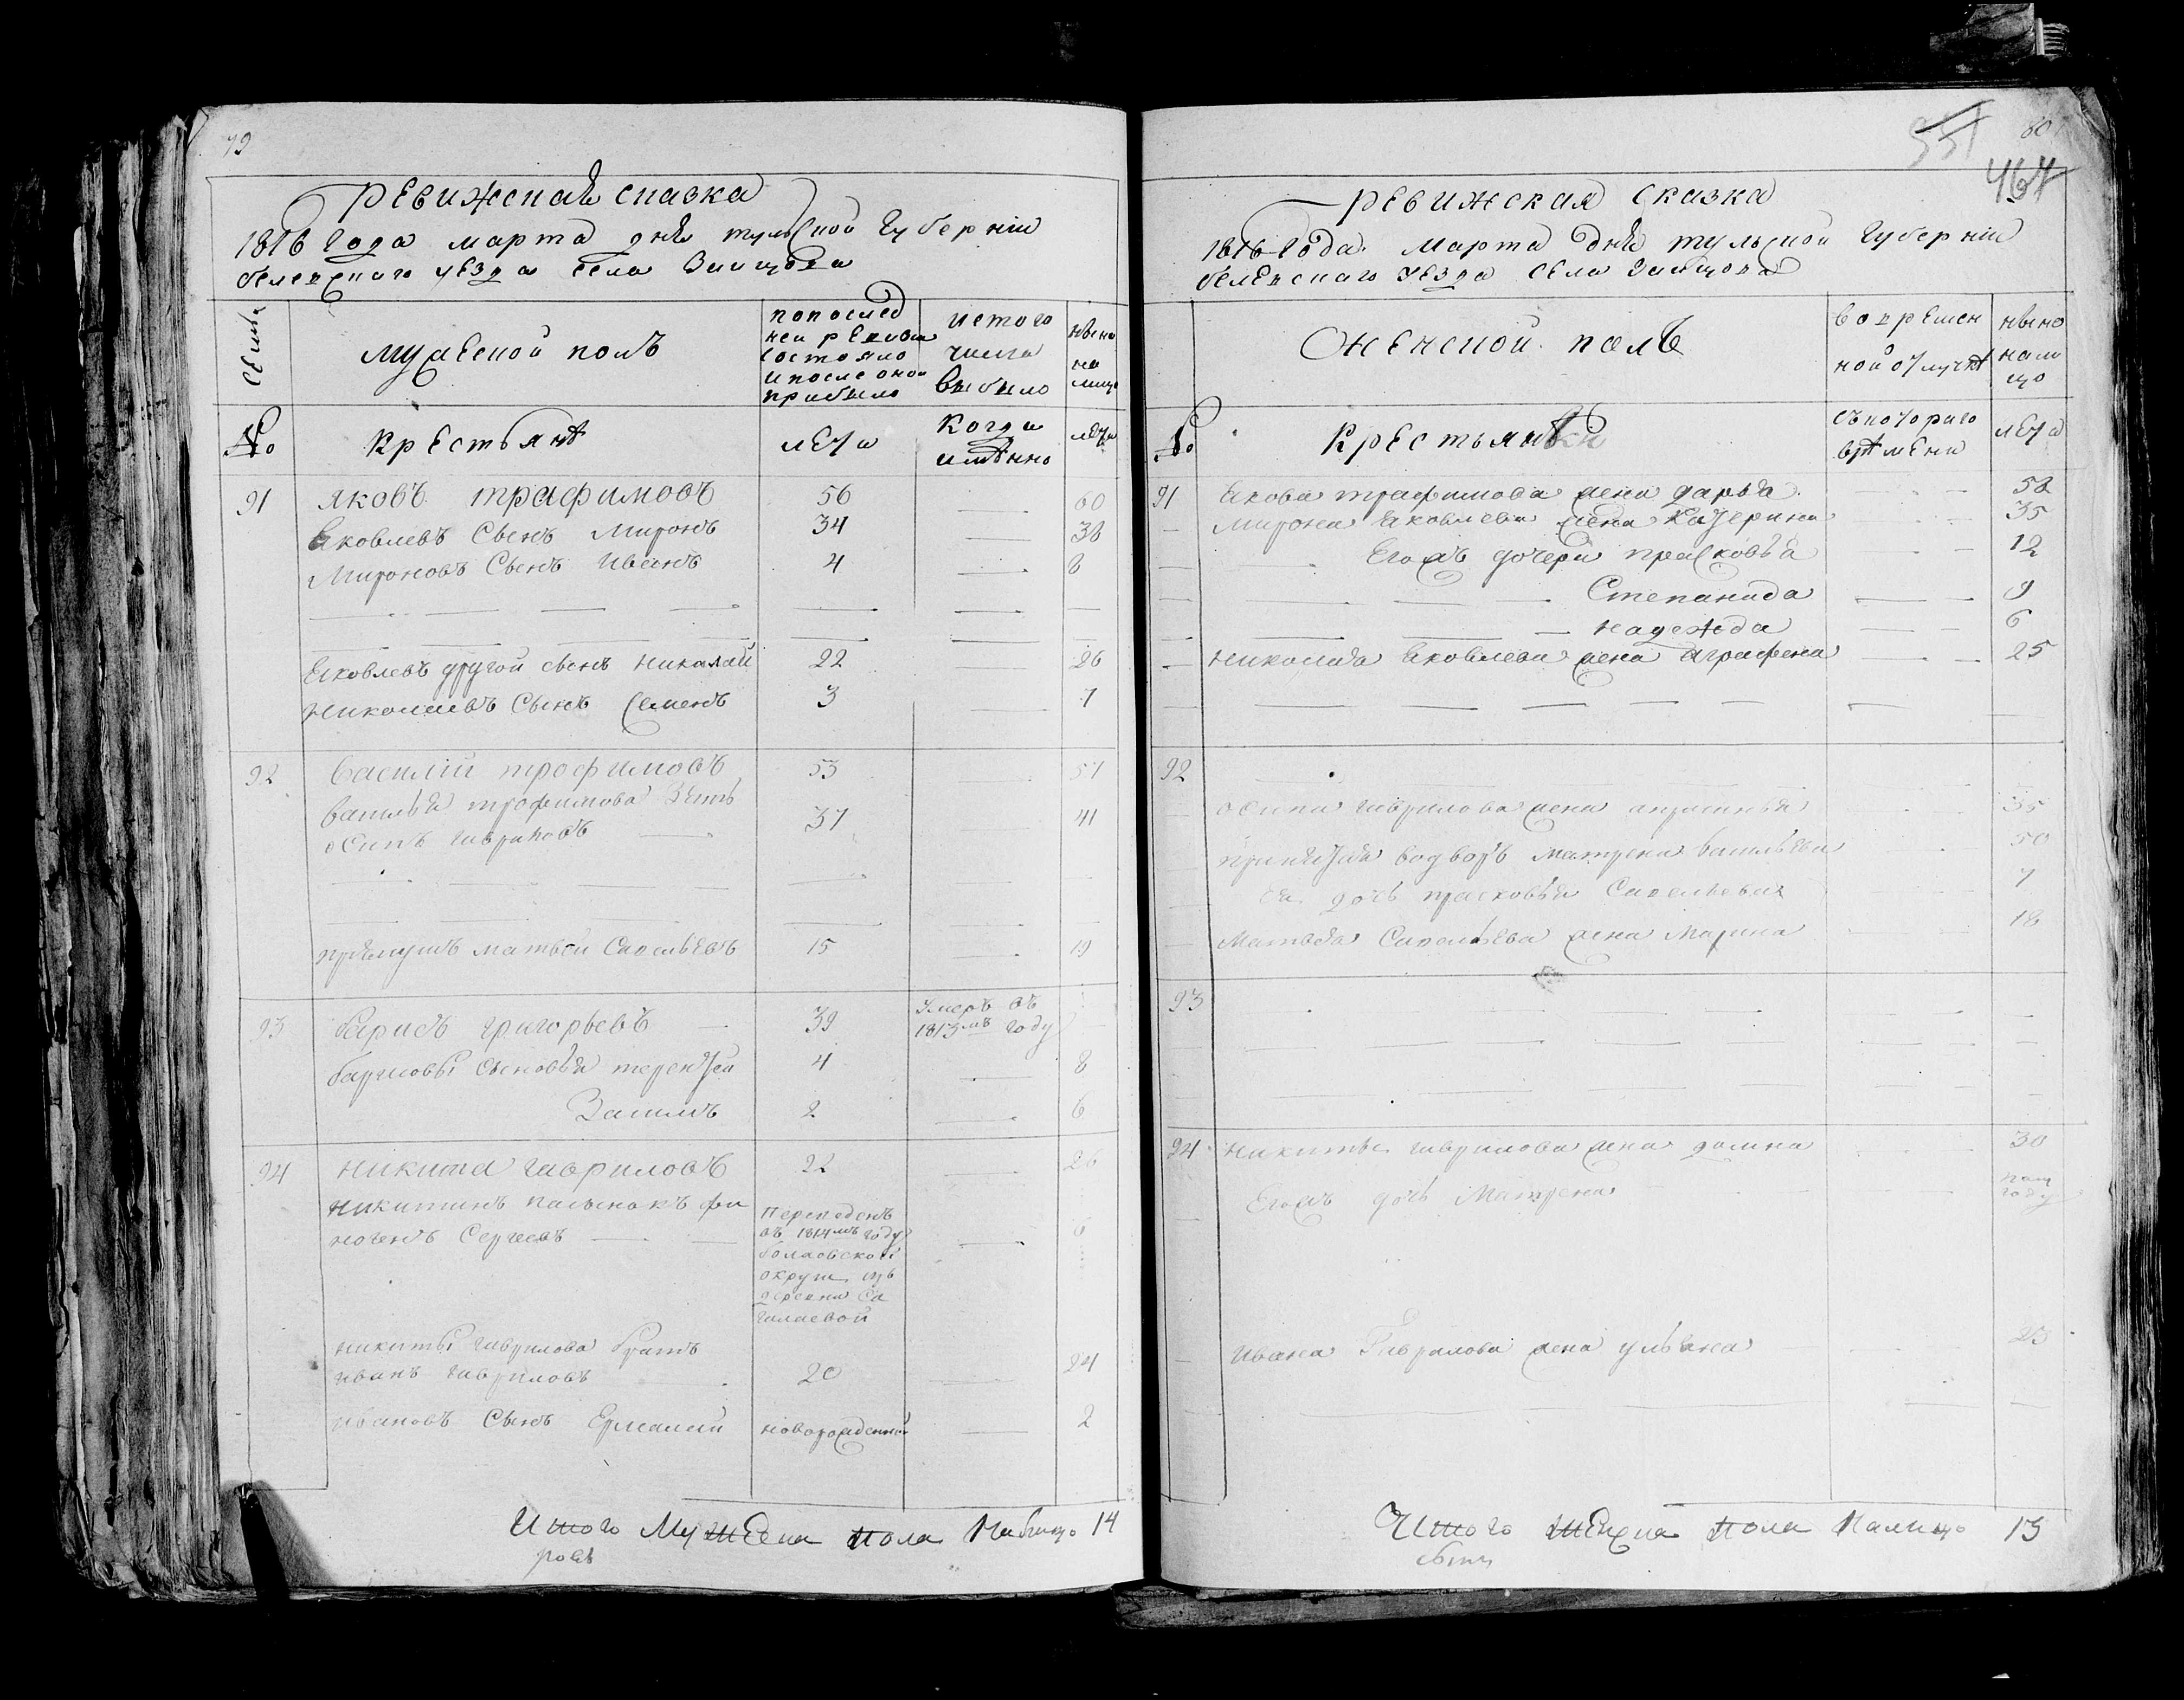 79
ревижская сказка
1816 года марта дня тульской губернии
белевского уезда села Зайцова
мужеской полъ
попослед
ней ревизии
состояло
и после оной
прибыло
изтого
числа
выбыло
ныне
на
лицо
№
крестьянѣ
лета
когда
имянно
лета
91 яковъ трафимовъ 56 60
Яковлевъ Сынъ Миронъ 34 38
Мироновъ Сынъ Иванъ 4 8
Яковлевъ другой сынъ николай 22 26
николаевъ Сынъ Семенъ 3 7
92 василий трофимовъ 53 57
василья трофимова зять
осипъ гавриловъ 37 41
приимышъ матвей Савельевъ 15 19
93 барисъ григорьевъ 39 умеръ въ
1813мъ году
барисовы сыновья терентей 4 8
2 6
94 никита гавриловъ 22 26
никитинъ пасынокъ фи
ногенъ Сергеевъ
переведенъ
въ 1814мъ году
округи изъ
деревни
6
никиты гаврилова братъ
иванъ гавриловъ 20 24
ивановъ Сынъ Ермалай новорожденной 2
Итого Мужеска пола Налицо 14
80
351
467
ревижская сказка
1816 года марта дня тульской губернии
белевского уезда села Зайцова
Женской полъ
вовремен
ной отлучкѣ
ныне
нали
цо
№
крестьянки
съкотораго
времени
лета
91 Якова трафимова жена дарья 58
Мирона Яковлева жена Катерина 35
Егожъ дочери прасковья 12
Степанида 9
надежда 6
николая Яковлева жена Аграфена 25
92
осипа гаврилова жена 35
принятая водворъ матрена васильева 50
Ея дочь прасковья Савельева 7
Матвея Савельева жена Марина 18
93
94 никиты гаврилова жена домна 30
Егожъ дочь Матрена
полу
году
ивана Гаврилова жена ульяна 23
Итого Женска пола Налицо 13